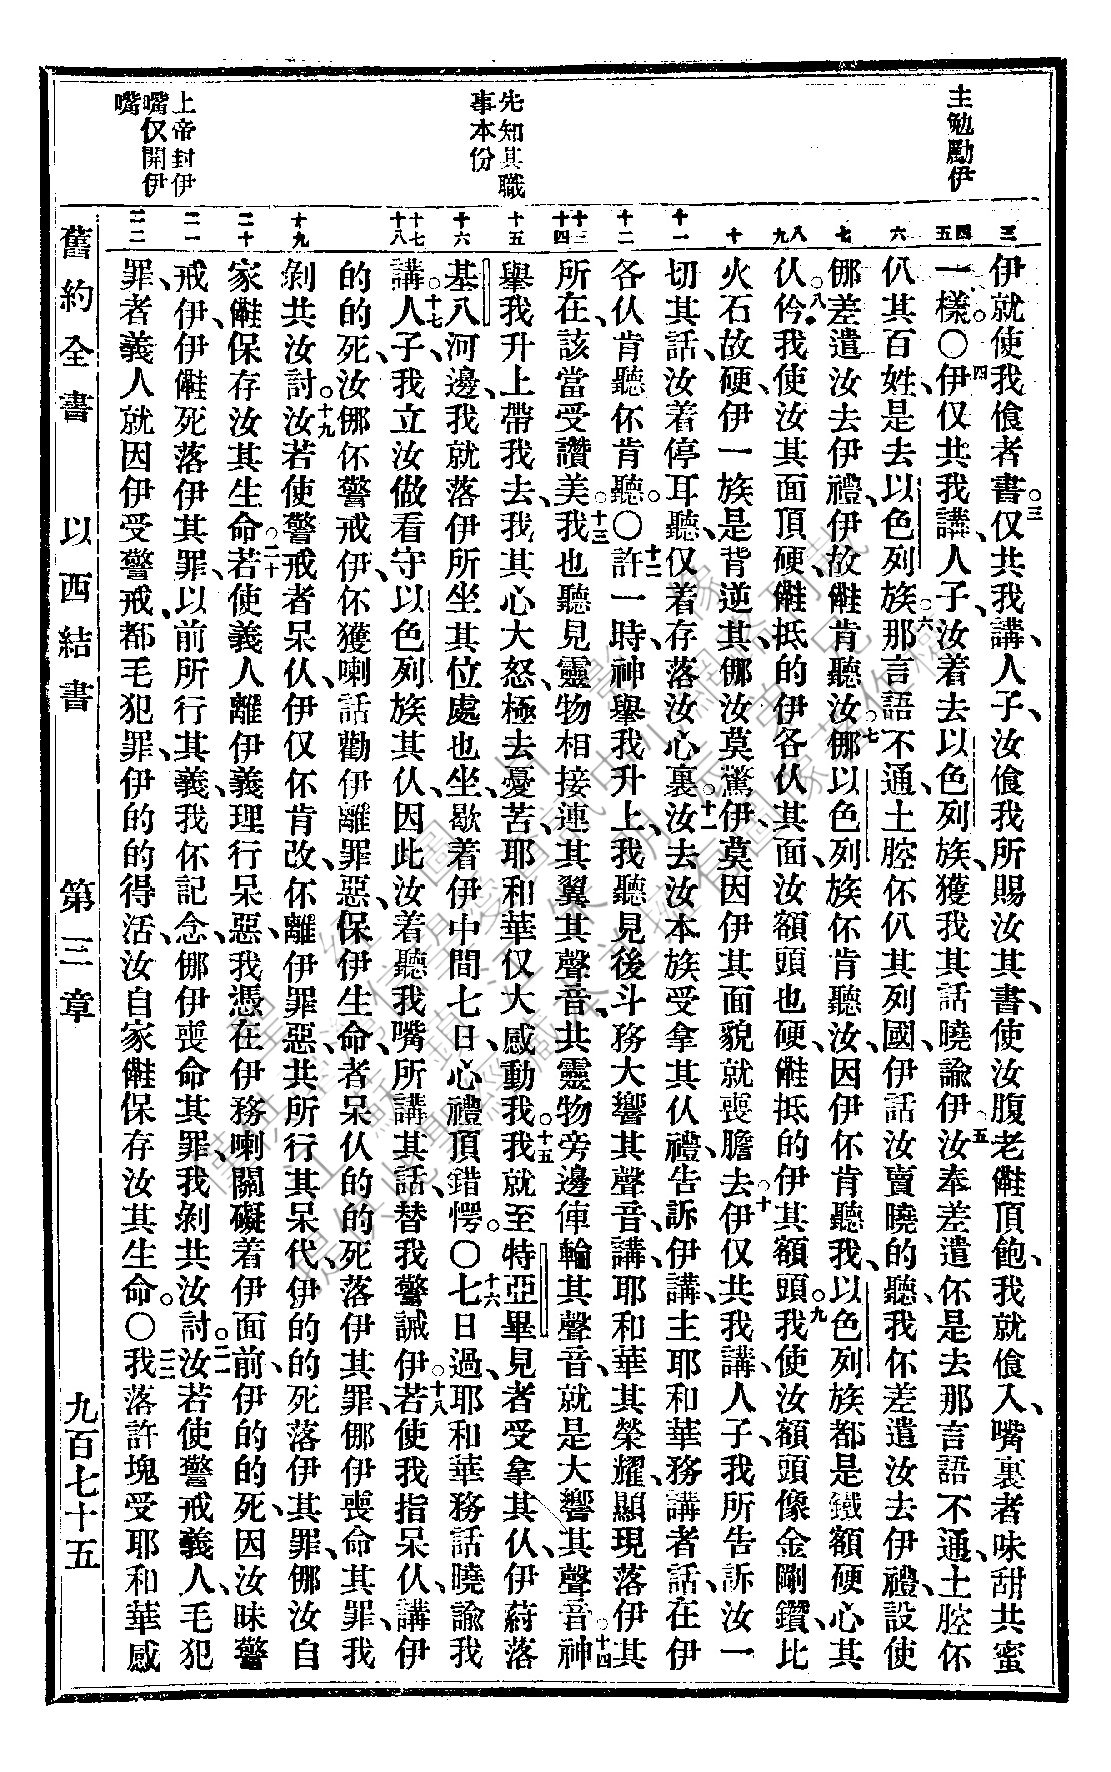 主勉勵伊
先知其職
事本份
上帝封伊
嘴仅開伊
嘴
三
四
五
六
七
八
九
十
十一
十二
十三
十四
十五
十六
十七
十八
十九
二十
二一
二二
伊就使我食者書。三仅共我講、人子、汝食我所賜汝其書、使汝腹老㑚頂飽、我就食入、嘴裏者味甜共蜜
一樣。〇四伊仅共我講、人子、汝着去以色列族、獲我其話曉諭伊。五汝奉差遣、伓是去那言語不通、土腔伓
仈其百姓、是去以色列族。六那言語不通土腔伓仈其列國、伊話汝賣曉的聽、我伓差遣汝去伊禮、設使
𠆧差遣汝去伊禮、伊故㑚肯聽汝。七𠆧以色列族伓肯聽汝、因伊伓肯聽我、以色列族都是鐵額硬心其
仈。八仱我使汝其面頂硬、㑚抵的伊各仈其面、汝額頭也硬、㑚抵的伊其額頭。九我使汝額頭像金剛鑽、比
火石故硬、伊一族是背逆其、𠆧汝莫驚伊、莫因伊其面貌就喪膽去。十伊仅共我講、人子、我所告訴汝一
切其話、汝着停耳聽、仅着存落汝心裏。十一汝去汝本族受拿其仈禮、告訴伊講、主耶和華務講者話、在伊
各仈肯聽伓肯聽。〇十二許一時神舉我升上、我聽見後斗務大響其聲音、講、耶和華其榮耀、顯現落伊其
所在、該當受讚美。十三我也聽見靈物相接連其翼其聲音、共靈物旁邊俥輪其聲音、就是大響其聲音。十四神
舉我升上、帶我去、我其心大怒、極去憂苦、耶和華仅大感動我。十五我就至特亞畢、見者受拿其仈、伊蒔落
基八河邊、我就落伊所坐其位處也坐、歇着伊中間七日、心禮頂錯愕。〇十六七日過、耶和華務話曉諭我
講。十七人子、我立汝做看守以色列族其仈、因此汝着聽我嘴所講其話、替我警誡伊。十八若使我指呆仈、講伊
的的死、汝𠆧伓警戒伊、伓獲喇話勸伊離罪惡、保伊生命、者呆仈的的死落伊其罪、𠆧伊喪命其罪、我
剝共汝討。十九汝若使警戒者呆仈、伊仅伓肯改、伓離伊罪惡、共所行其呆代、伊的的死落伊其罪、𠆧汝自
家㑚保存汝其生命。二十若使義人離伊義理行呆惡、我憑在伊務喇關礙着伊面前、伊的的死、因汝昧警
戒伊、伊㑚死落伊其罪、以前所行其義、我伓記念、𠆧伊喪命其罪、我剝共汝討。二一汝若使警戒義人、毛犯
罪、者義人就因伊受警戒、都毛犯罪、伊的的得活、汝自家㑚保存汝其生命。〇二二我落許塊受耶和華感
舊約全書　以西結書　第三章　九百七十五